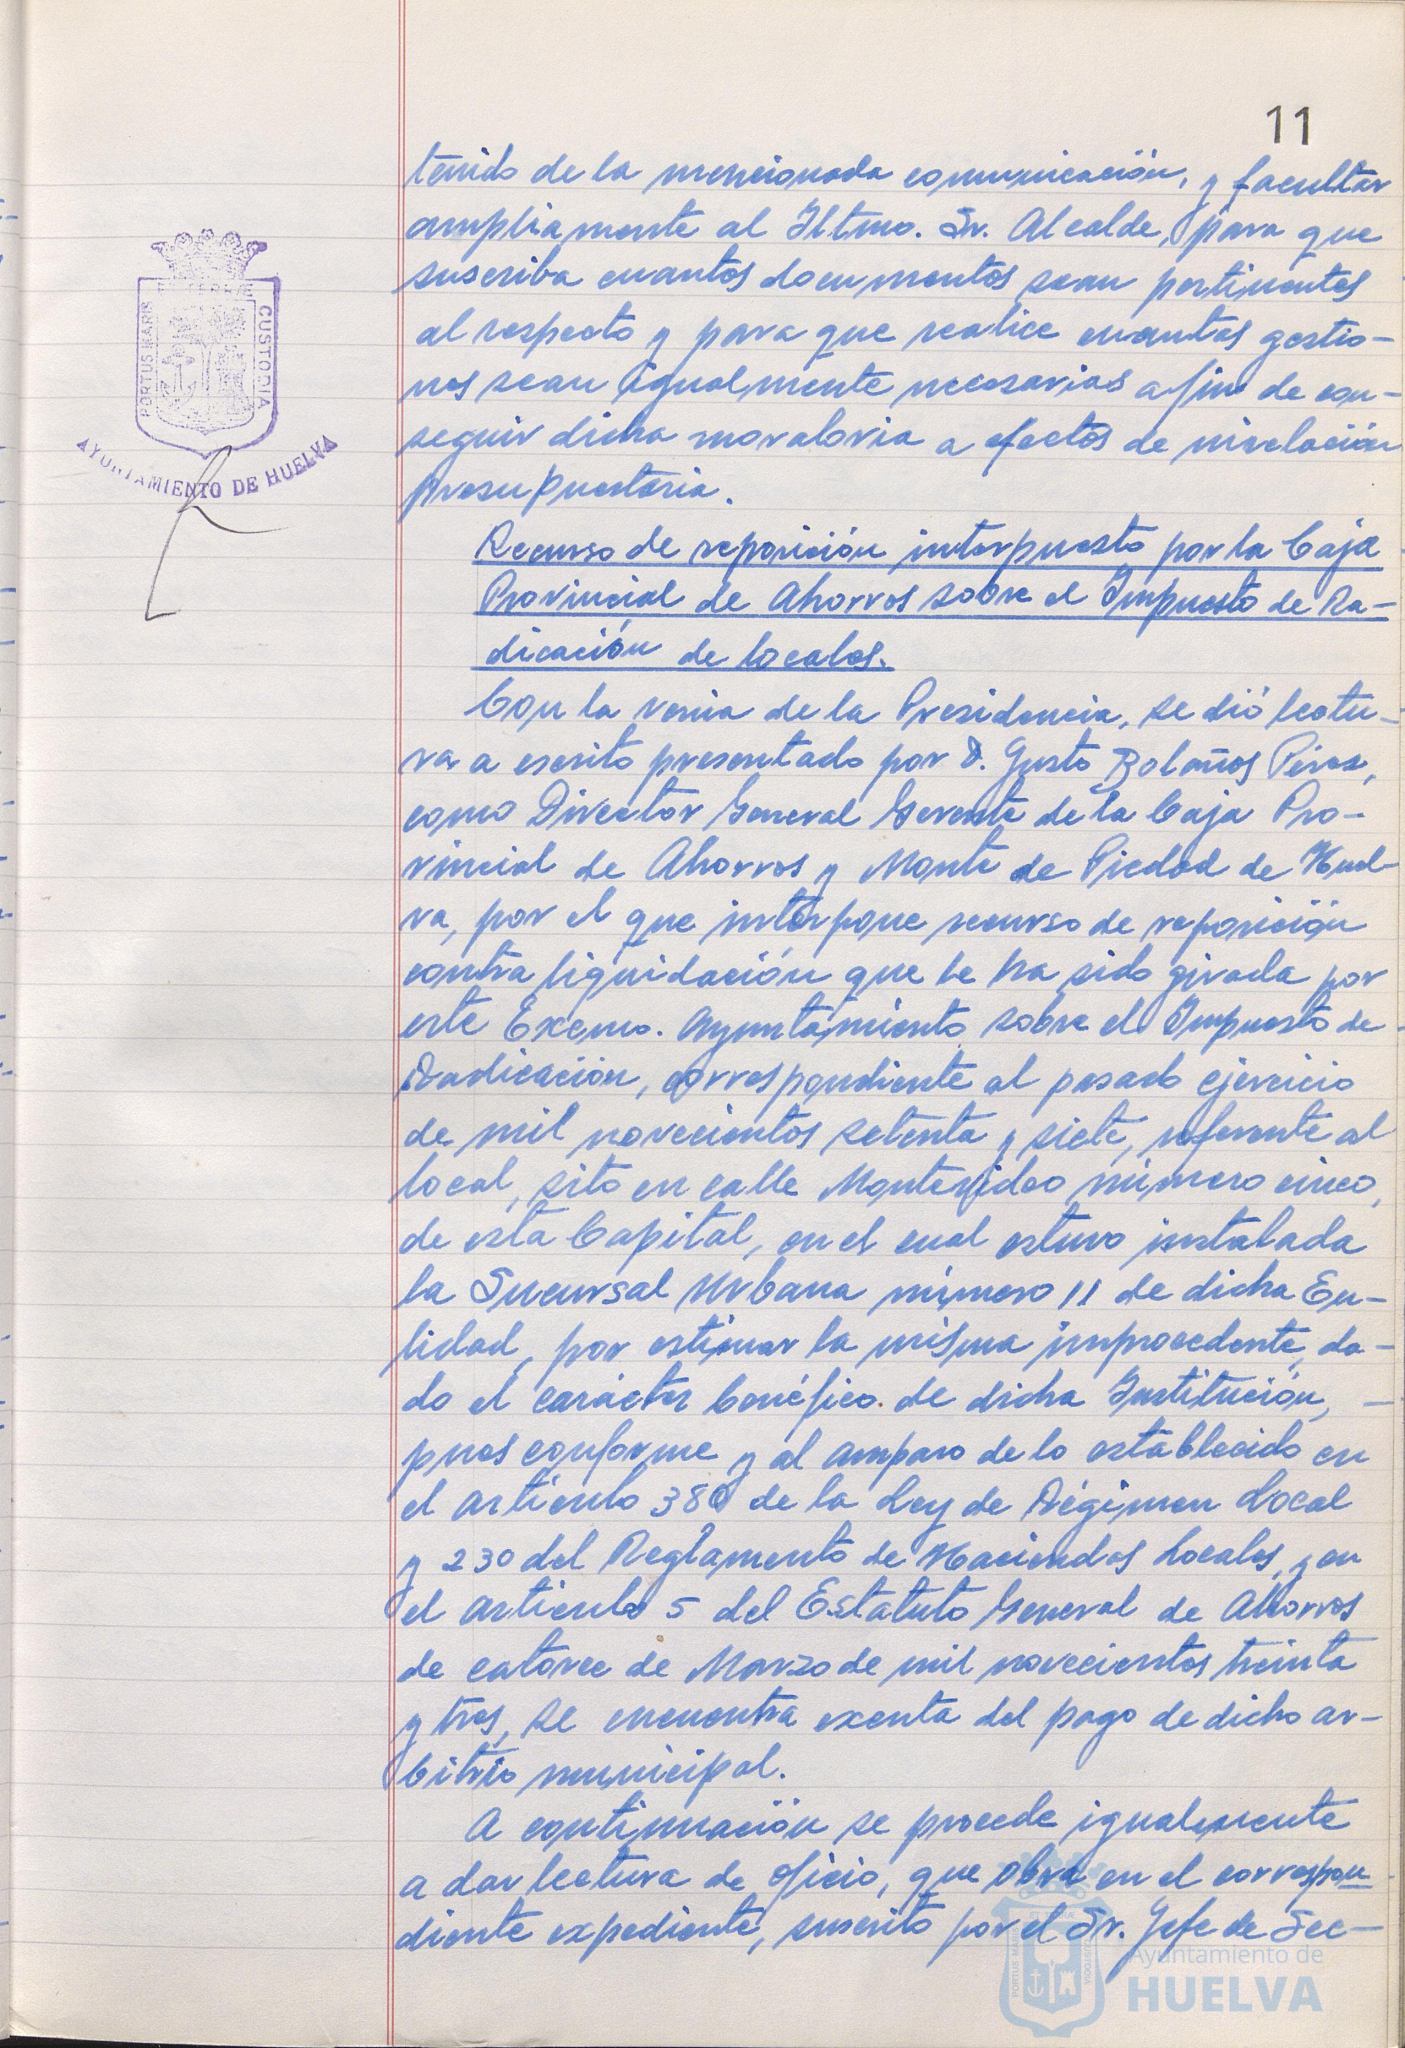 11
tenido de la mencionada comunicación, y facultar
ampliamente al Iltmo. Sr. Alcalde, para que
suscriba cuantos documentos sean pertinentes
al respecto y para que realice cuantas gestio-
nes sean igualmente necesarias a fin de con-
seguir dicha moratoria a efectos de nivelación
presupuestaria.
Recurso de reposición interpuesto por la Caja
Provincial de Ahorros sobre el Impuesto de Ra-
dicación de locales.
Con la venia de la Presidencia, se dió lectu-
ra a escrito presentado por D. Justo Bolaños Pérez,
como Director General Gerente de la Caja Pro-
vincial de Ahorros y Monte de Piedad de Huel-
va, por el que interpone recurso de reposición
contra liquidación que le ha sido girada por
este Excmo. Ayuntamiento sobre el Impuesto de
Radicación, correspondiente al pasado ejercicio
de mil novecientos setenta y siete, referente al
local, sito en calle Montevideo número cinco,
de esta Capital, en el cual estuvo instalada
la Sucursal Urbana número 11 de dicha En-
tidad, por estimar la misma improcedente, da-
do el carácter benéfico de dicha Institución, -
pues conforme y al amparo de lo establecido en
el artículo 380 de la Ley de Régimen Local
y 230 del Reglamento de Haciendas Locales, y en
el artículo 5 del Estatuto General de Ahorros
de catorce de Marzo de mil novecientos treinta
y tres, se encuentra exenta del pago de dicho ar-
bitrio municipal.
A continuación se procede igualmente
a dar lectura de oficio, que obra en el correspon-
diente expediente, suscrito por el Sr. Jefe de Sec-
PORTUS MARIS
CUSTODIA
AYUNTAMIENTO DE HUELVA
Ayuntamiento de
HUELVA